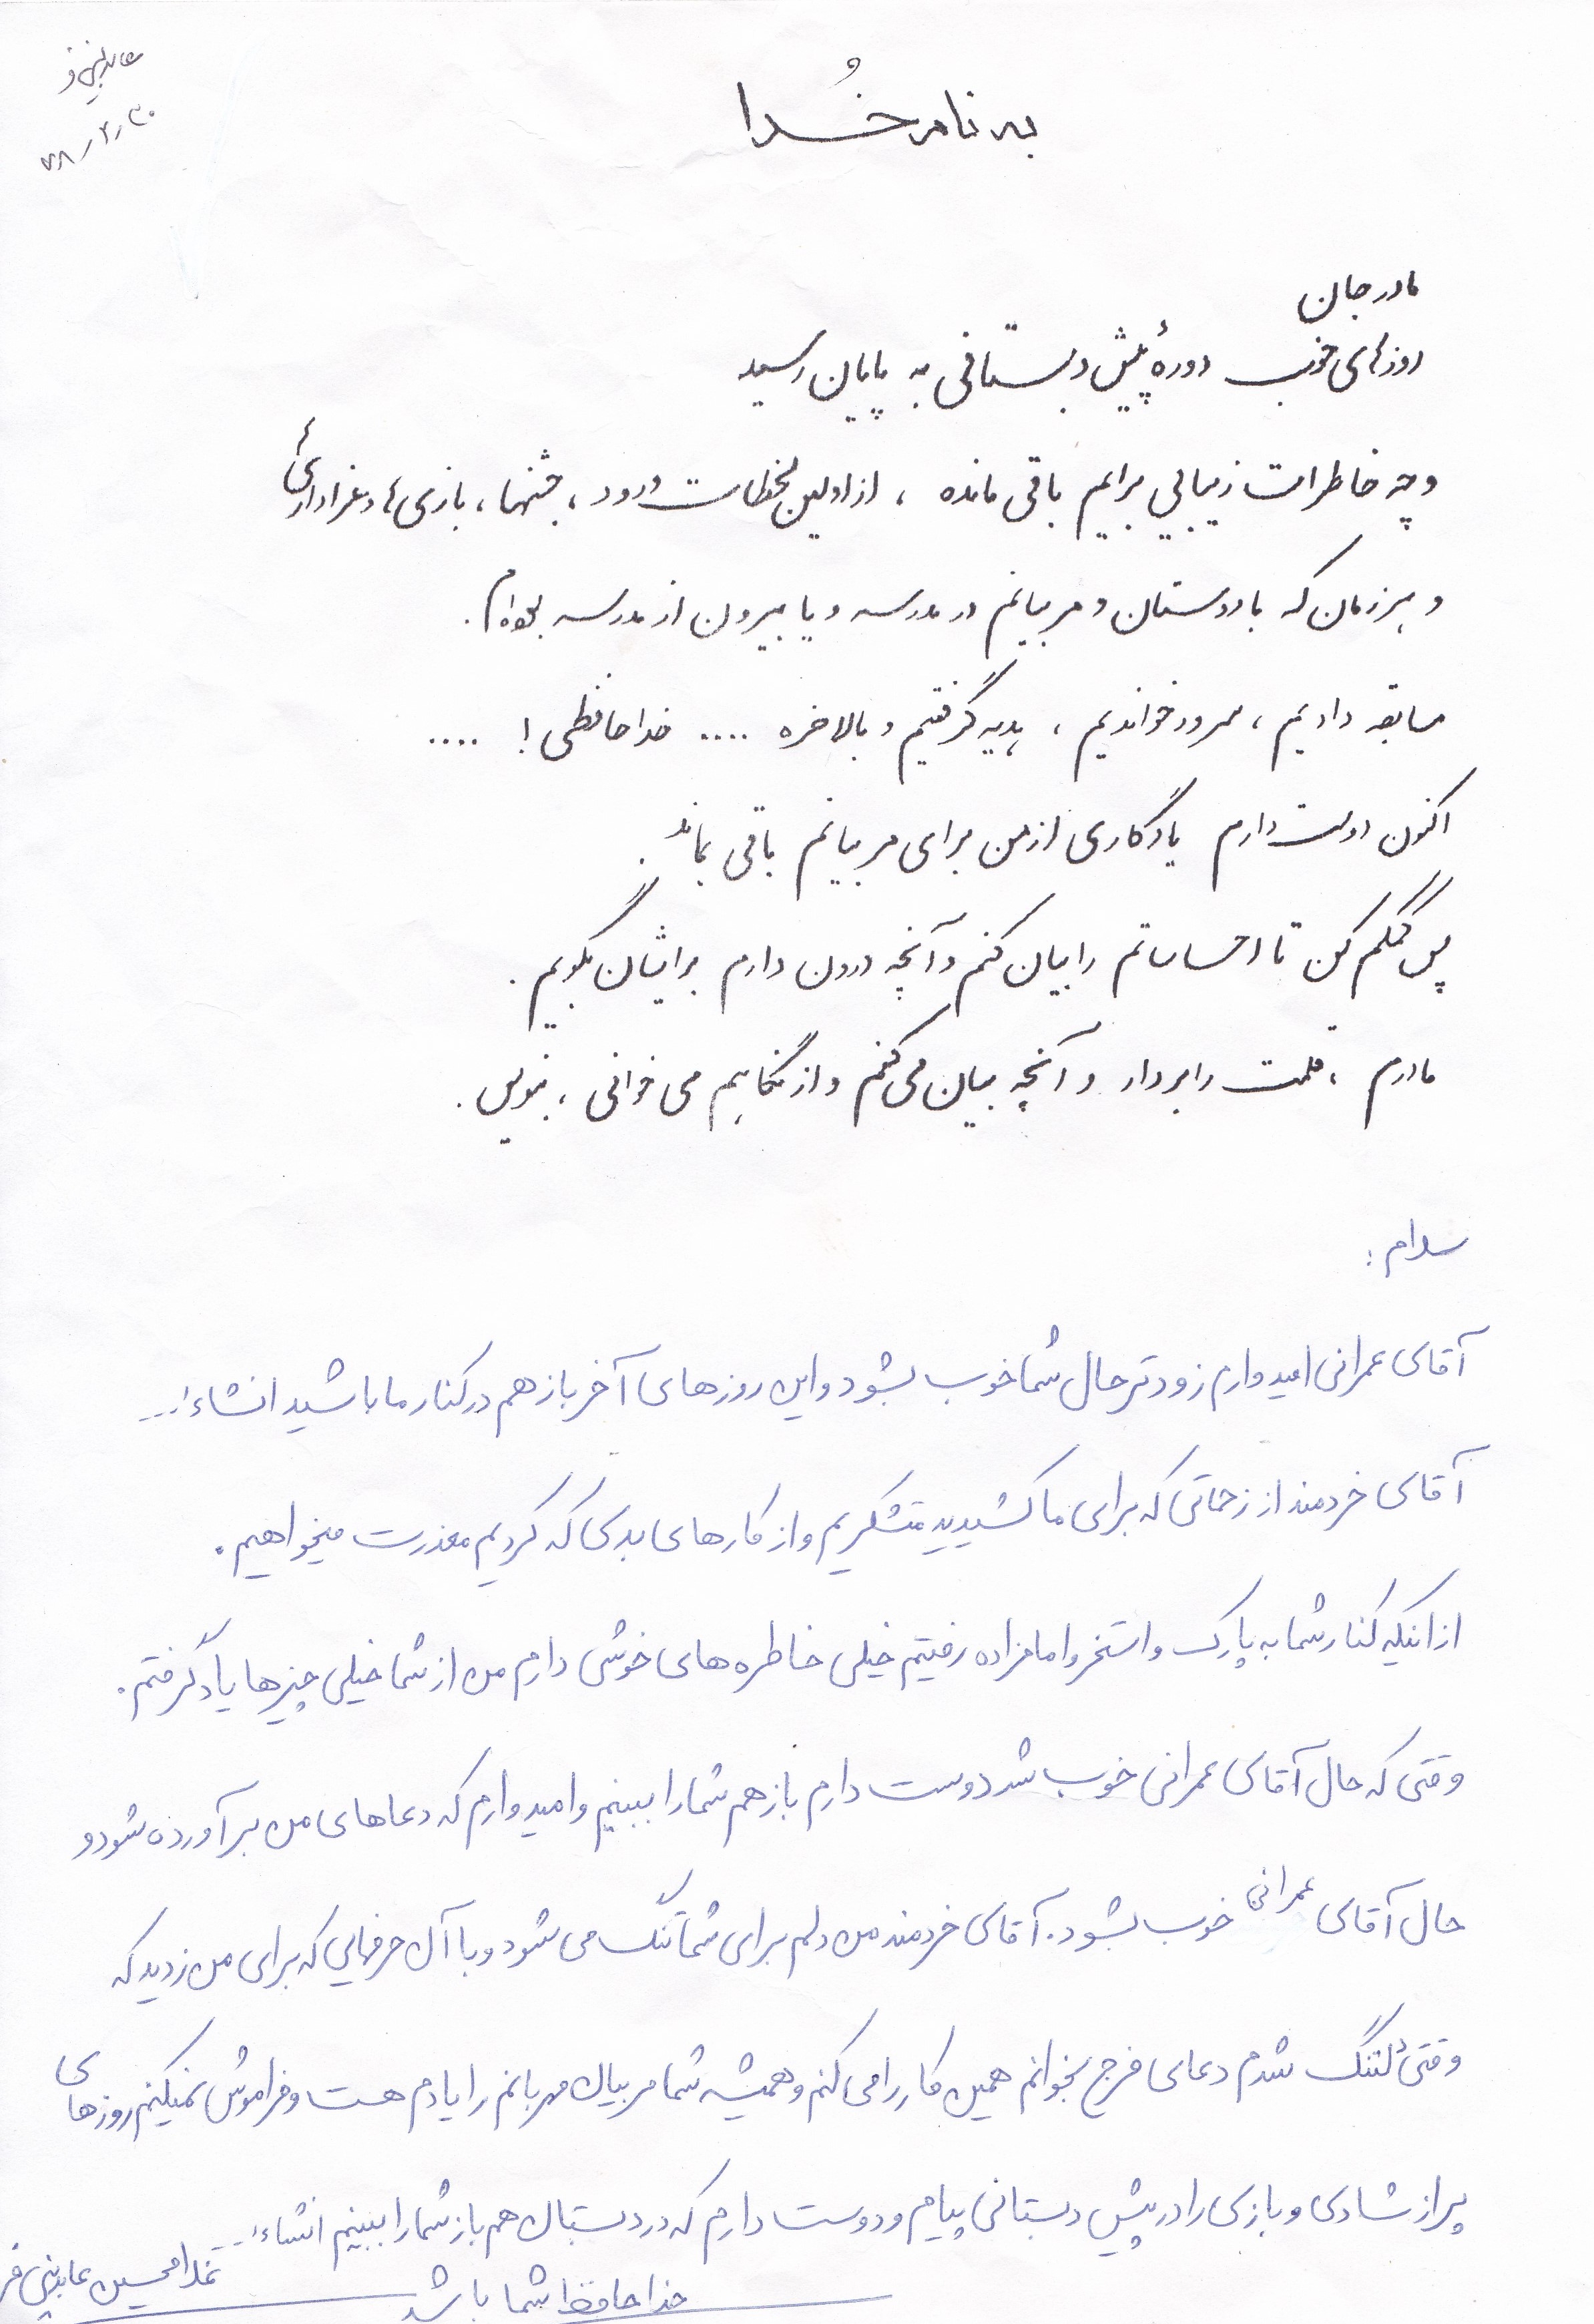 عابدینی فر
۷۸/۲/۳۰
به نام خُدا
مادر جان
روزهای خوب دورهٔ پیش دبستانی به پایان رسید
و چه خاطرات زیبایی برایم باقی مانده ، از اولین لحظات ورود ، جشنها ، بازی ها و عزاداری ها
و هر زمان که با دوستان و مربیانم در مدرسه و یا بیرون از مدرسه بوده ام .
مسابقه دادیم ، سرود خواندیم ، هدیه گرفتیم و بالاخره .... خداحافظی ! ....
اکنون دوست دارم یادگاری از من برای مربیانم باقی بماند .
پس کمکم کن تا احساساتم را بیان کنم و آنچه درون دارم برایشان بگویم .
مادرم ، قلمت را بردار و آنچه بیان می کنم و از نگاهم می خوانی ، بنویس .
سلام :
آقای عمرانی امیدوارم زودتر حال شما خوب بشود و این روزهای آخر باز هم در کنار ما باشید انشاءا...
آقای خردمند از زحماتی که برای ما کشیدید متشکریم و از کارهای بدی که کردیم معذرت میخواهیم .
از اینکه کنار شما به پارک و استخر و امامزاده رفتیم خیلی خاطره های خوش دارم من از شما خیلی چیزها یاد گرفتم .
وقتی که حال آقای عمرانی خوب شد دوست دارم باز هم شما را ببینم و امیدوارم که دعاهای من برآورده شود و
حال آقای عمرانی خوب بشود . آقای خردمند من دلم برای شما تنگ می شود و با آن حرفهایی که برای من زدید که
وقتی دلتنگ شدم دعای فرج بخوانم همین کار را می کنم و همیشه شما مربیان مهربانم را یادم هست و فراموش نمیکنم روزهای
پر از شادی و بازی را در پیش دبستانی پیام و دوست دارم که در دبستان هم باز شما را ببینم انشاءا...
خدا حافظ شما باشد
غلامحسین عابدینی فر